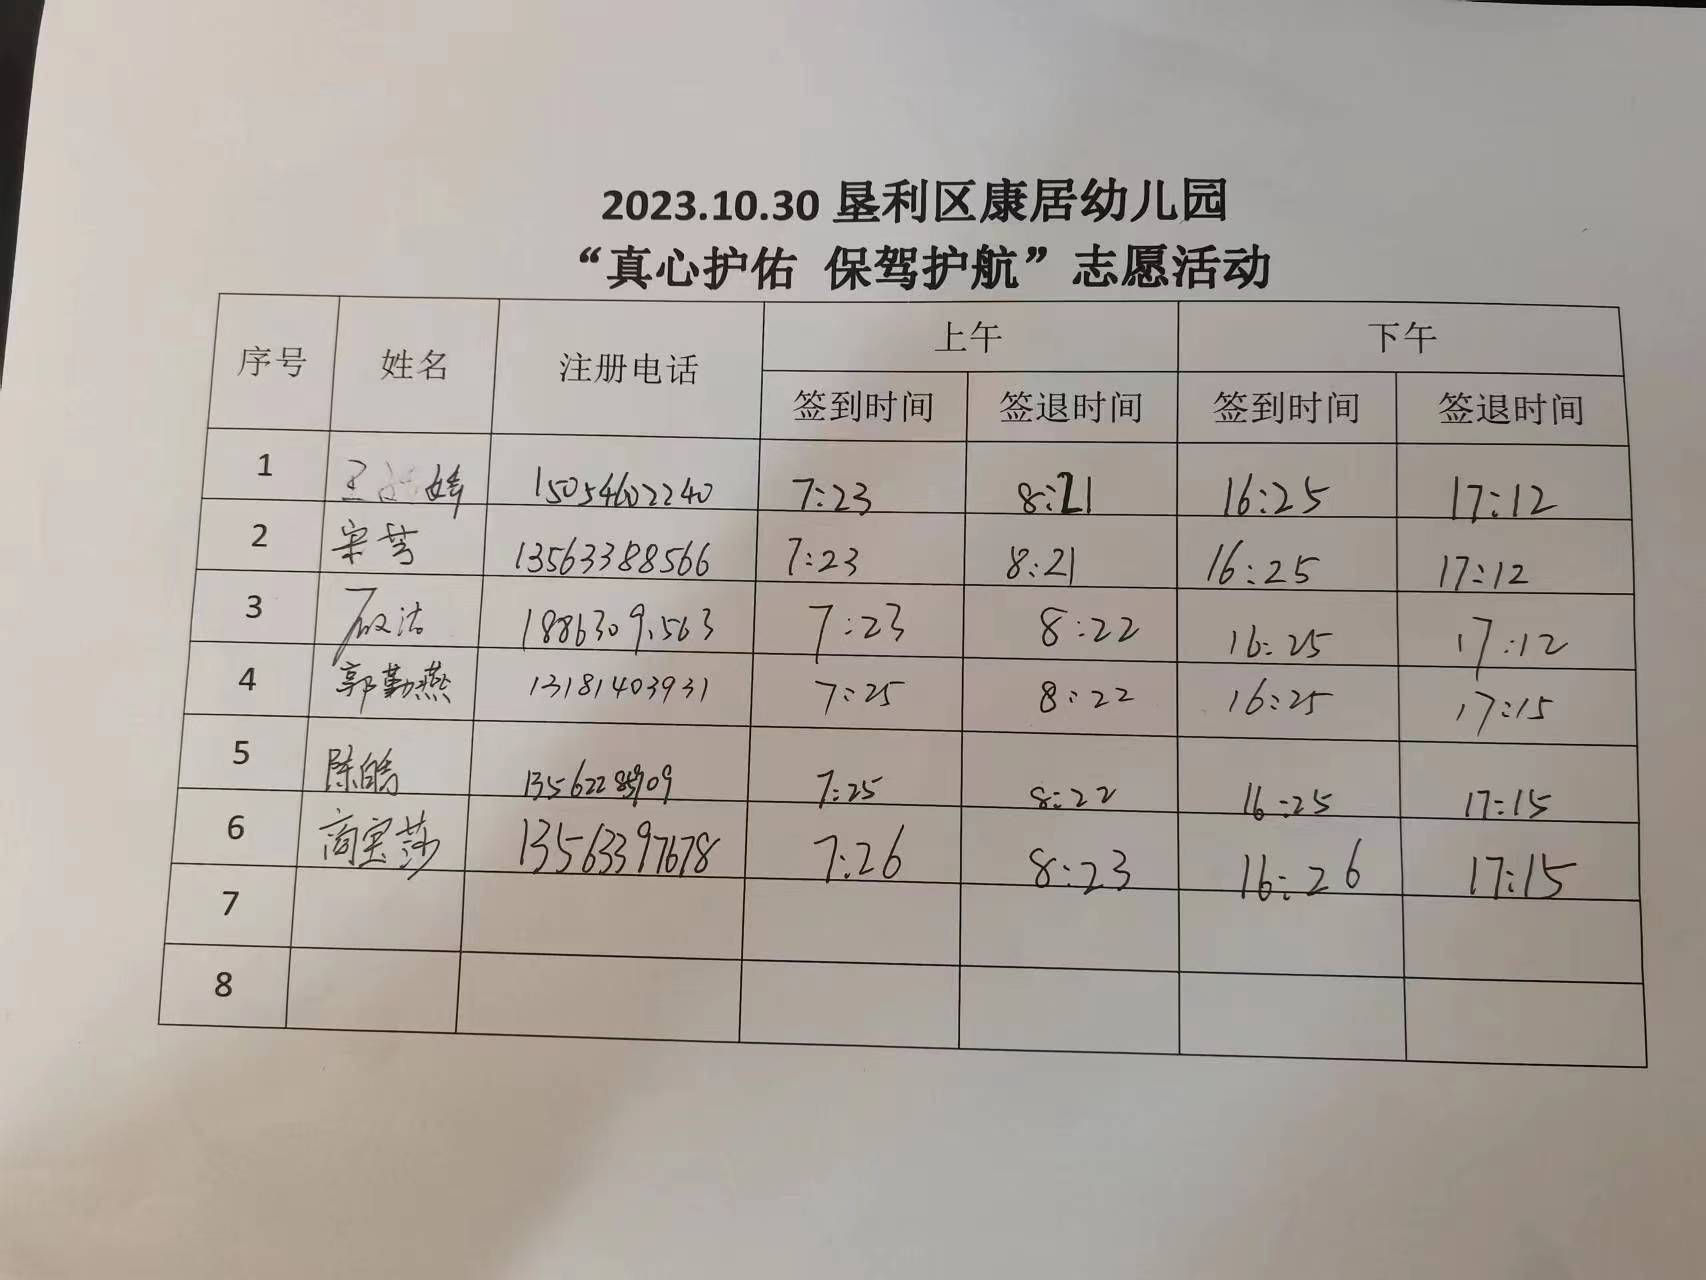 2023.10.30 垦利区康居幼儿园
“真心护佑 保驾护航”志愿活动
序号 姓名 注册电话 上午 下午
签到时间 签退时间 签到时间 签退时间
1 王 婷 15054602240 7:23 8:21 16:25 17:12
2 宋芸 13563388566 7:23 8:21 16:25 17:12
3 1886309.563 7:23 8:22 16:25 17:12
4 郭勤燕 13181403931 7:25 8:22 16:25 17:15
5 陈皓 7:25 8:22 16:25 17:15
6 商宝莎 13563397678 7:26 8:23 16:26 17:15
7
8